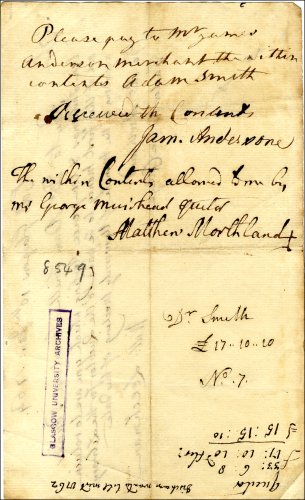 Please pay to Mr James
Anderson merchant the within
contents Adam Smith
Received the Contents
Jam. Andersone
The within Contents allowed to me by
mr George Muirhead Qustor
Matthew Morthland
8549
GLASGOW UNIVERSITY ARCHIVES
Dr Smith
£ 17-10-10
No. 7.
£ 15:15:10
17:10:10
£33:6:8